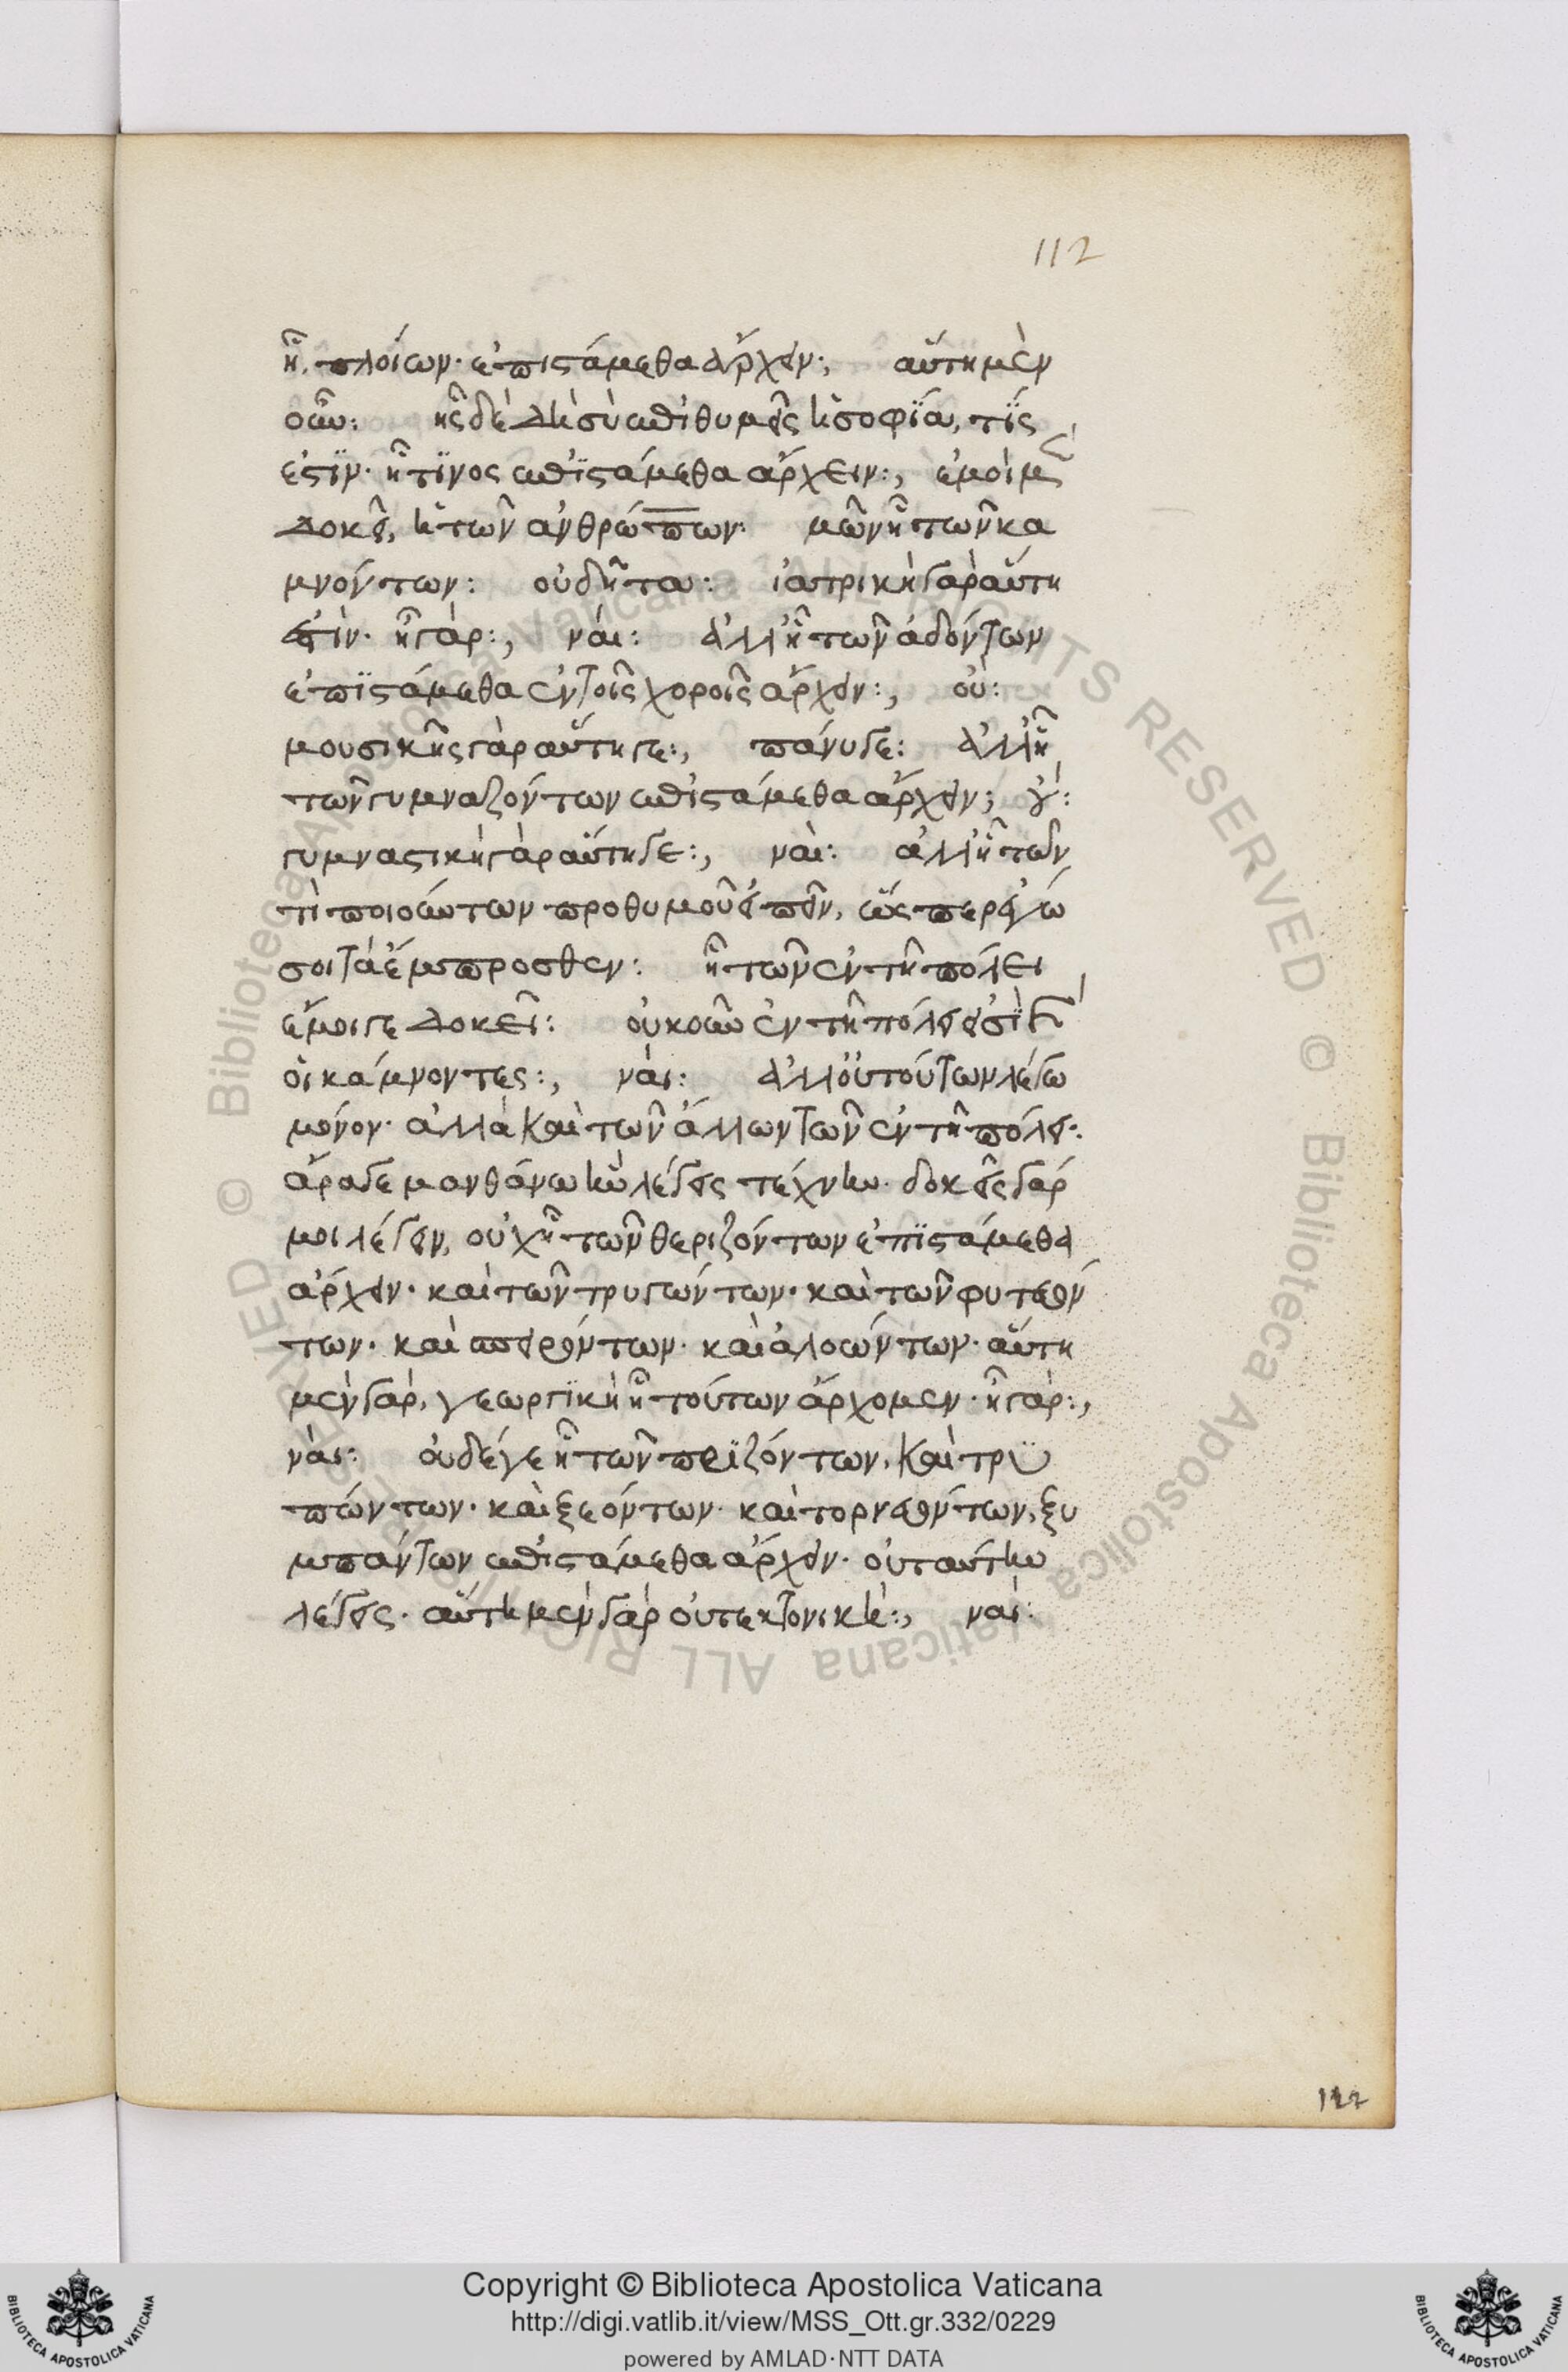 112
ᾗ πλοίων· ἐπιστάμεθα ἄρχειν; αὕτη μὲν
οὖν: ἧς δὲ δὴ σὺ ἐπιθυμεῖς ἡ σοφία, τίς
ἐστϊν· ᾗ τίνος ἐπϊστάμεθα ἄρχειν:, ἐμοὶ μὲν
δοκεῖ, ᾗ τῶν ἀνθρώπων· μῶν ᾗ τῶν κα
μνόντων: οὐ δῆτα: ἰατρικὴ γὰρ αὕτη
ἐστὶν· ἦ γάρ:, ναί: ἀλλ' ᾗ τῶν ἀδόντων
ἐπϊστάμεθα ἐν τοῖς χοροῖς ἄρχειν:, οὐ:
μουσικῆς γὰρ αὕτη γε:, πάνυ γε: ἀλλ' ᾗ
τῶν γυμναζόντων ἐπιστάμεθα ἄρχειν; οὐ:
γυμναστικὴ γὰρ αὕτη γε:, ναὶ: ἀλλ' ᾗ τῶν
τὶ ποιούντων προθυμοῦ εἰπεῖν, ὥσπερ ἐγὼ
σοι τὰ ἔμπροσθεν: ᾗ τῶν ἐν τῇ πόλει
ἔμοιγε δοκεῖ: οὐκοῦν ἐν τῇ πόλει εἰσϊ καὶ
οἱ κάμνοντες:, ναὶ: ἀλλ' οὐ τούτων λέγω
μόνον· ἀλλὰ καὶ τῶν ἄλλων τῶν ἐν τῇ πόλει·
ἆρά γε μανθάνω ἣν λέγεις τέχνην· δοκεῖς γάρ
μοι λέγειν, οὐχ ᾗ τῶν θεριζόντων ἐπϊστάμεθα
ἄρχειν· καὶ τῶν τρυγώντων· καὶ τῶν φυτευόν
των· καὶ σπειρόντων· καὶ ἁλοώντων· αὕτη
μὲν γὰρ, γεωργϊκὴ ᾗ τούτων ἄρχομεν· ἦ γάρ:,
ναὶ: οὐδέ γε ᾗ τῶν πρϊζόντων, καὶ τρϋ
πώντων· καὶ ξεόντων· καὶ τορνευόντων, ξυ
μπάντων ἐπιστάμεθα ἄρχειν· οὐ ταύτην
λέγεις· αὕτη μὲν γὰρ οὐ τεκτονική:, ναί:
Copyright © Biblioteca Apostolica Vaticana
http://digi.vatlib.it/view/MSS_Ott.gr.332/0229
powered by AMLAD·NTT DATA